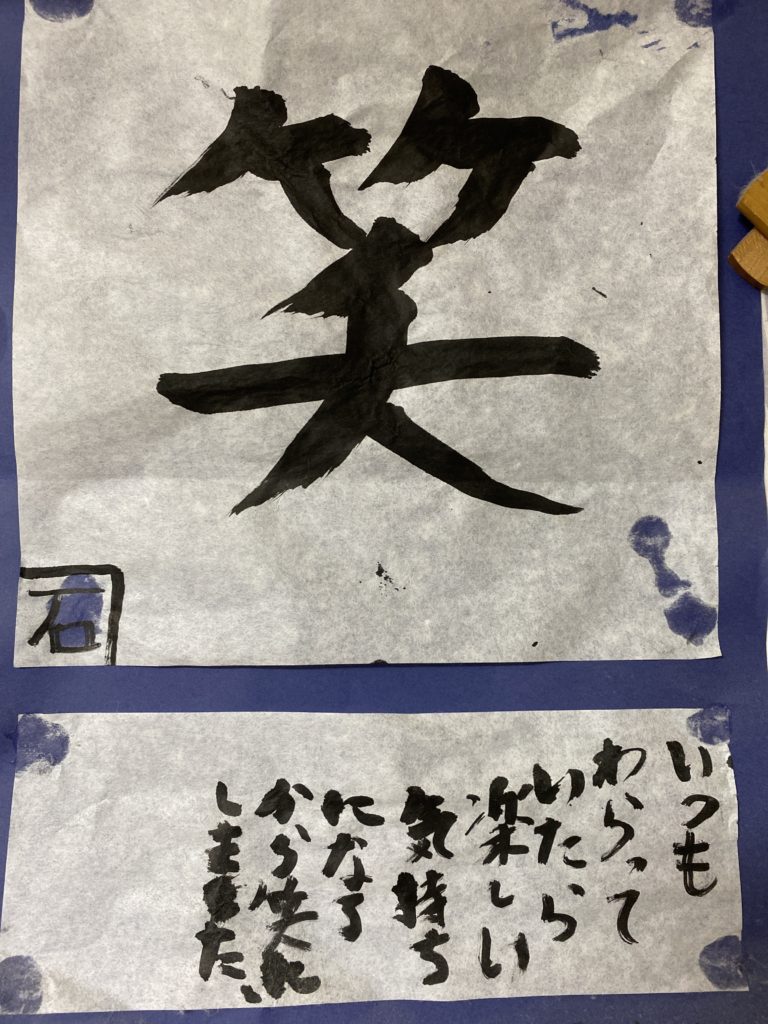 笑
石
いつも
わらって
いたら
楽しい
気持ち
になる
から笑に
しました、